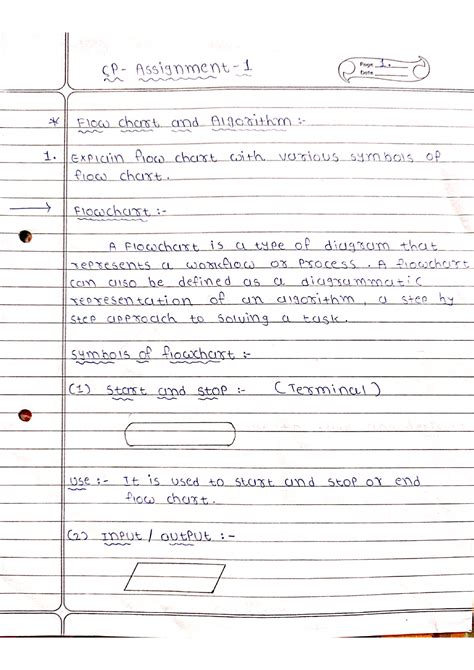 CP- Assignment-1
Page 1.
Date
* Flow chart and Algorithm :-
1. Explain flow chart with various symbols of
flow chart.
→ Flowchart :-
A Flowchart is a type of diagram that
represents a workflow or process. A flowchart
can also be defined as a diagrammatic
representation of an algorithm, a step by
step approach to solving a task.
Symbols of flowchart :-
(1) Start and stop :- (Terminal)
Use :- It is used to start and stop or end
flow chart.
(2) Input / output :-